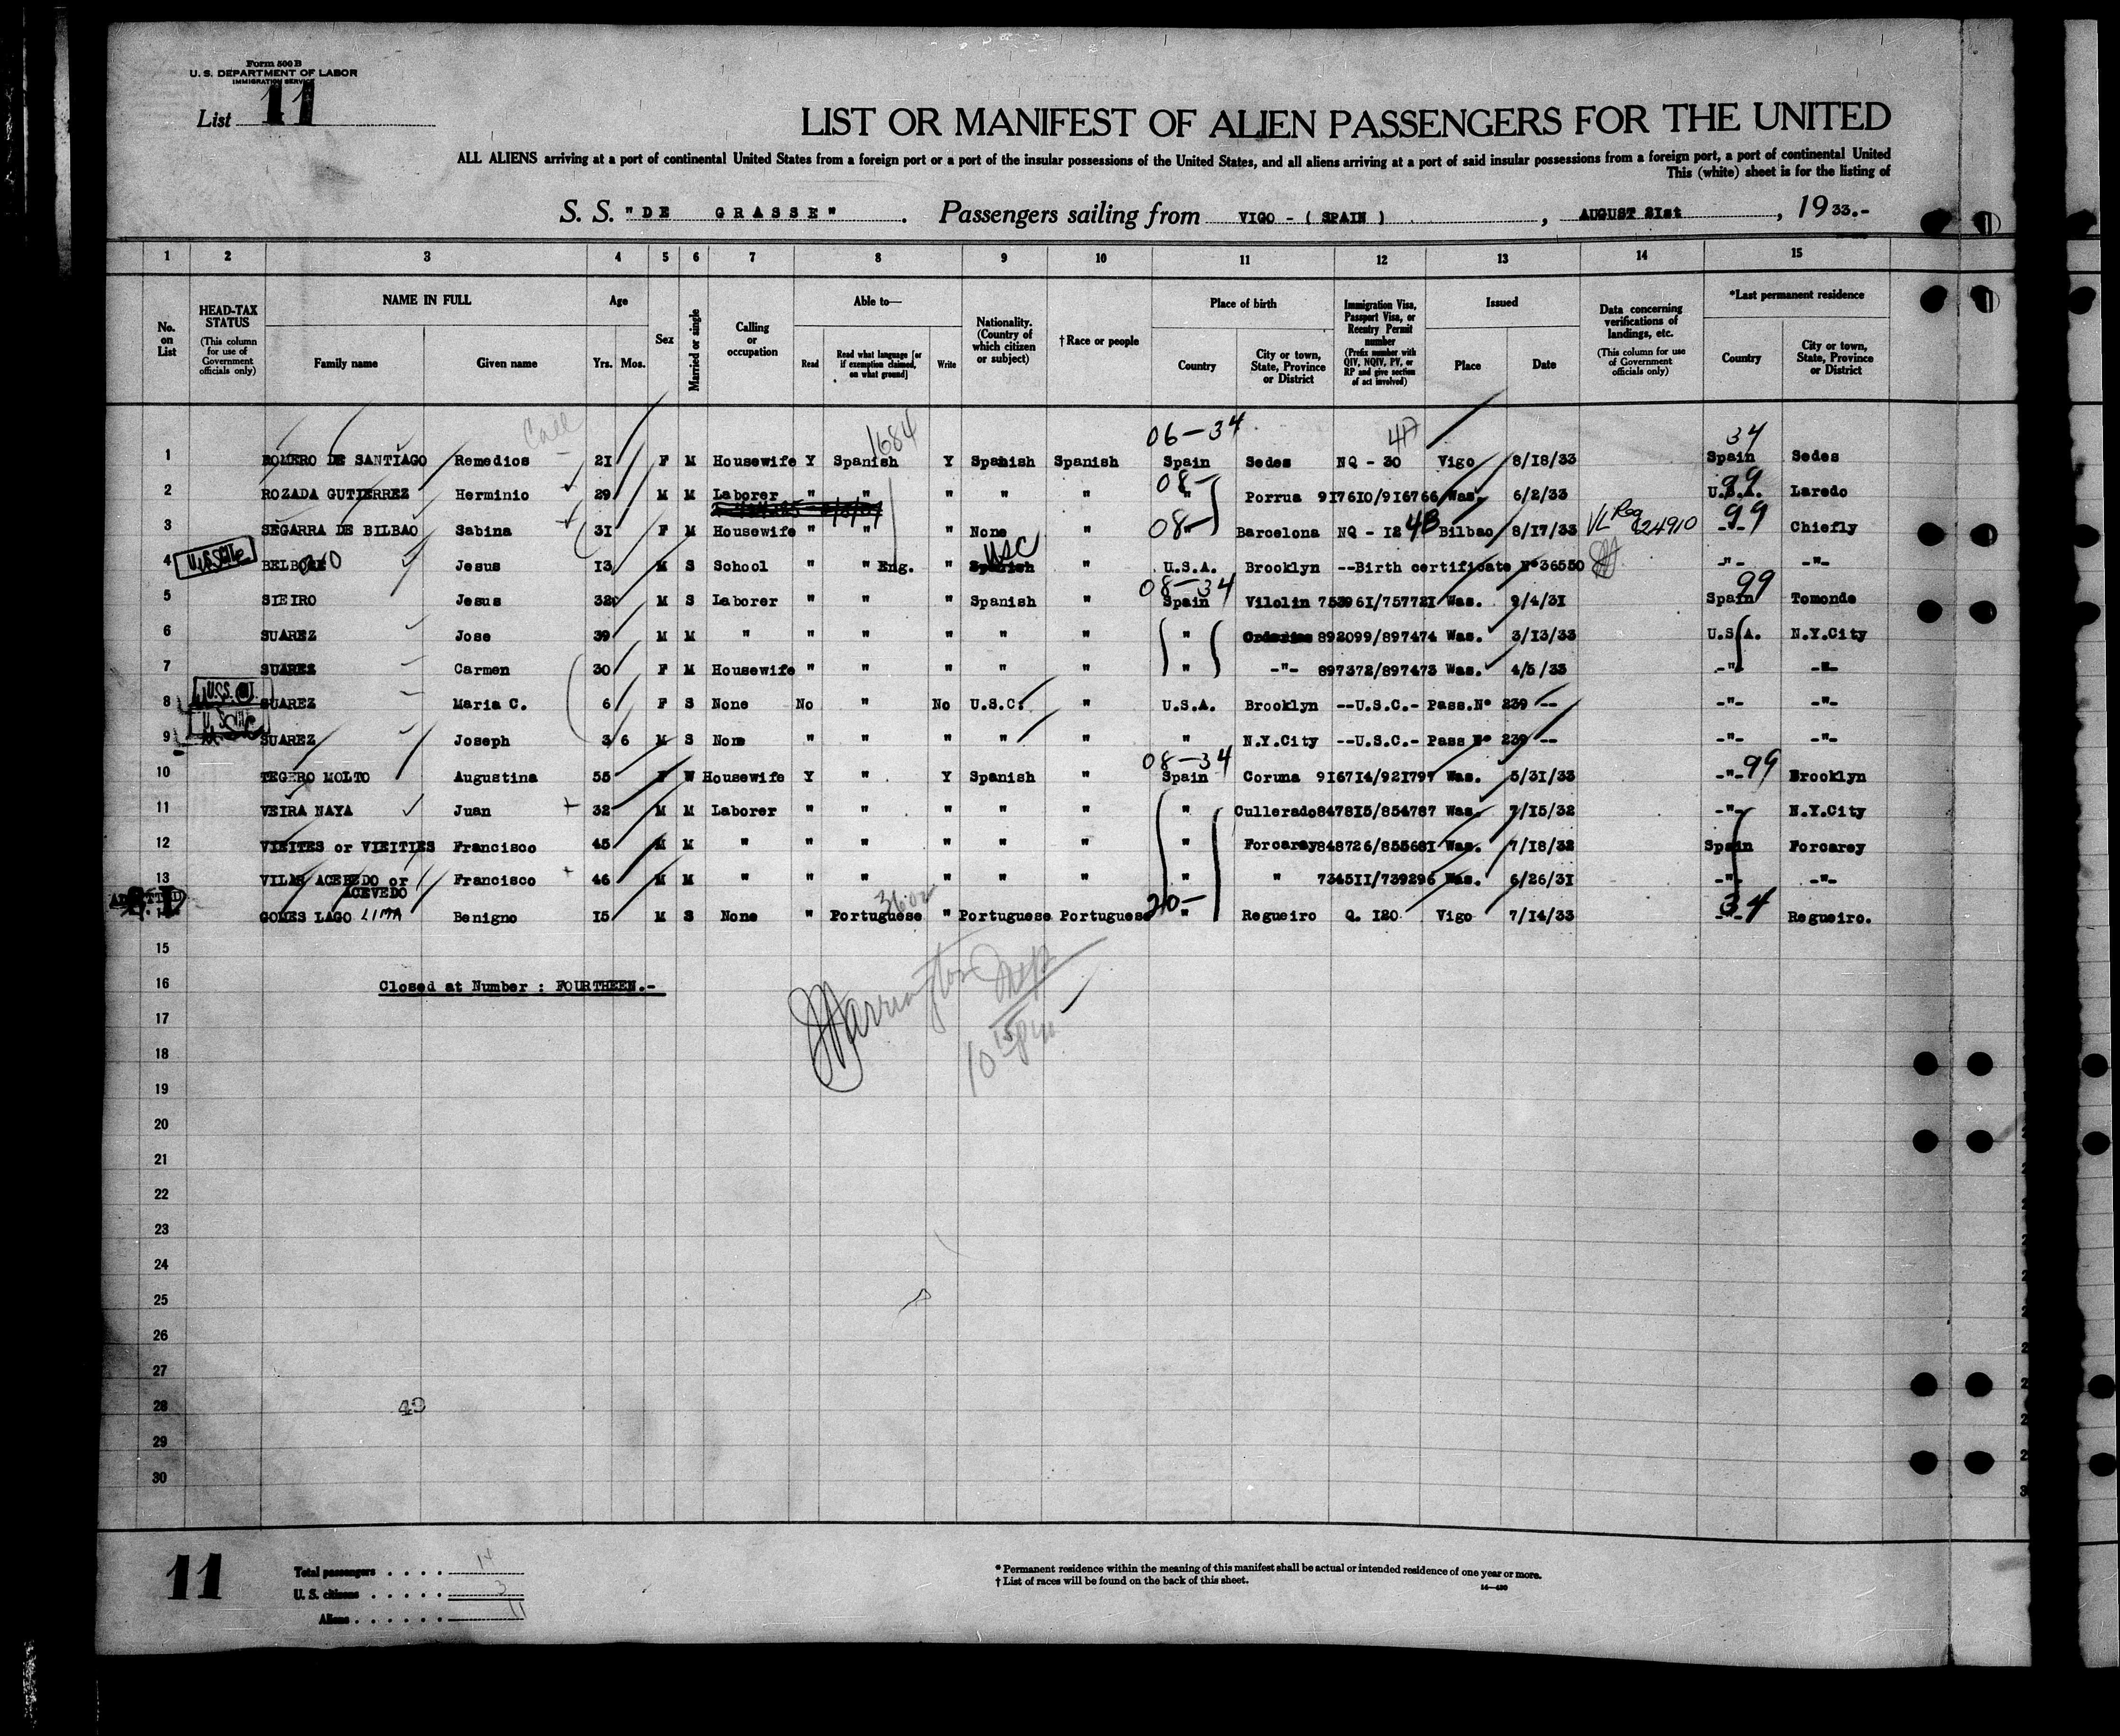 Form 500 B
U. S. DEPARTMENT OF LABOR
IMMIGRATION SERVICE
List 11
LIST OR MANIFEST OF ALIEN PASSENGERS FOR THE UNITED
ALL ALIENS arriving at a port of continental United States from a foreign port or a port of the insular possessions of the United States, and all aliens arriving at a port of said insular possessions from a foreign port, a port of continental United
This (white) sheet is for the listing of
S. S. "DE GRASSE" . Passengers sailing from VIGO - ( SPAIN ) , AUGUST 21st , 1933.-
1 2 3 4 5 6 7 8 9 10 11 12 13 14 15
No. on List
HEAD-TAX STATUS (This column for use of Government officials only)
NAME IN FULL
Family name Given name
Age
Yrs. Mos.
Sex
Married or single
Calling or occupation
Able to—
Read Read what language [or if exemption claimed, on what ground] Write
Nationality. (Country of which citizen or subject)
†Race or people
Place of birth
Country City or town, State, Province or District
Immigration Visa, Passport Visa, or Reentry Permit number (Prefix number with QIV, NQIV, PV, or RP and give section of act involved)
Issued
Place Date
Data concerning verifications of landings, etc. (This column for use of Government officials only)
*Last permanent residence
Country City or town, State, Province or District
Call 1684 06-34 34
1 ROMERO DE SANTIAGO Remedios 21 F M Housewife Y Spanish Y Spanish Spanish Spain Sedes NQ - 30 Vigo 8/18/33 Spain Sedes
08- 99
2 ROZADA GUTIERREZ Herminio 29 M M Laborer " " " " " " Porrua 917610/916766 Was. 6/2/33 U.S.A. Laredo
3 SEGARRA DE BILBAO Sabina 31 F M Housewife " " " None " 08-" Barcelona NQ - 12 4B Bilbao 8/17/33 VL Reg 99 -"- Chiefly
4 Jesus 13 M S School " " Eng. " USC " U.S.A. Brooklyn --Birth certificate Nº 36550 -"- -"-
08-34 99
5 SIEIRO Jesus 32 M S Laborer " " " Spanish " Spain Vilolin 753961/757721 Was. 9/4/31 Spain Tomonde
6 SUAREZ Jose 39 M M " " " " " " " 892099/897474 Was. 3/13/33 U.S.A. N.Y.City
7 SUAREZ Carmen 30 F M Housewife " " " " " " -"- 897372/897473 Was. 4/5/33 -"- -"-
8 SUAREZ Maria C. 6 F S None No " No U.S.C. " U.S.A. Brooklyn --U.S.C.- Pass.Nº 239 -- -"- -"-
9 SUAREZ Joseph 3/6 M S None " " " " " " N.Y.City --U.S.C.- Pass Nº 239 -- -"- -"-
08-34 99
10 TEGERO MOLTO Augustina 55 F W Housewife Y " Y Spanish " Spain Coruna 916714/921797 Was. 5/31/33 -"- Brooklyn
11 VEIRA NAYA Juan 32 M M Laborer " " " " " " Cullerado 847815/854787 Was. 7/15/32 -"- N.Y.City
12 VIEITES or VIEITIES Francisco 45 M M " " " " " " " Forcarey 848726/855681 Was. 7/18/32 Spain Forcarey
13 VILAR ACEBEDO or ACEVEDO Francisco 46 M M " " " " " " " " 734511/739296 Was. 6/26/31 -"- -"-
20- 34
GOMES LAGO LIMA Benigno 15 M S None " Portuguese " Portuguese Portuguese " Regueiro Q. 120 Vigo 7/14/33 -"- Regueiro.
15
16 Closed at Number : FOURTHEEN.-
17
18
19
20
21
22
23
24
25
26
27
28 49
29
30
11
Total passengers . . . . 14
U. S. citizens . . . . . 3
Aliens . . . . . . 11
* Permanent residence within the meaning of this manifest shall be actual or intended residence of one year or more.
† List of races will be found on the back of this sheet.